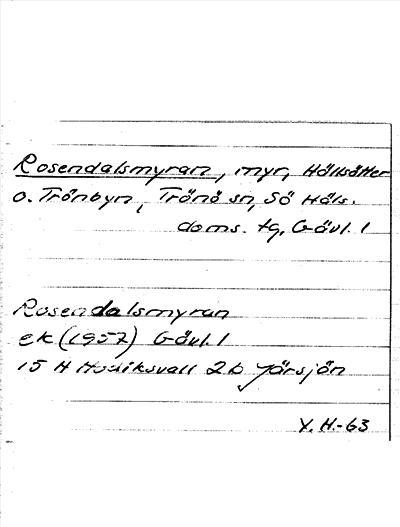 Rosendalsmyran, myr, Hällsätter
o. Trönbyn, Trönö sn, Sö Häls.
doms. tg, Gävl. l
Rosendalsmyran
ek (1957) Gävl. l
15 H Hudiksvall 2b Järsjön
Y. H.-63